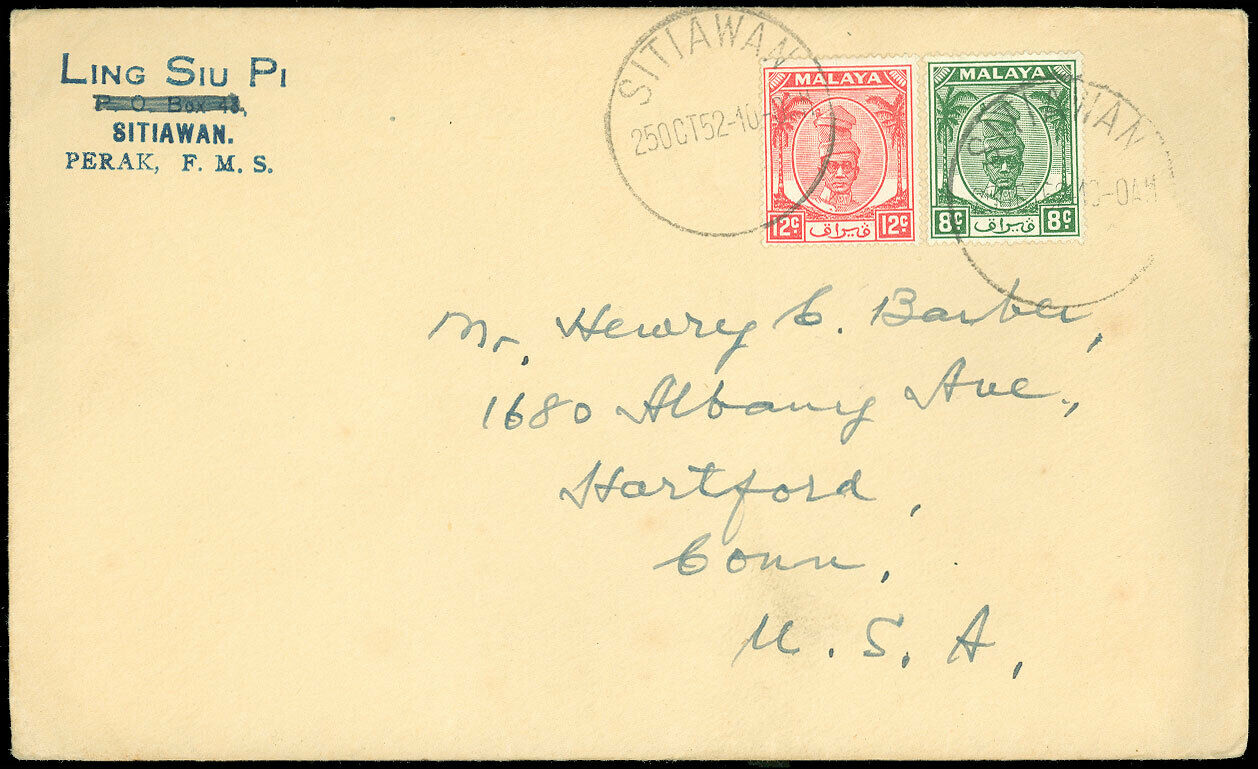 LING SIU PI
P. O. Box 43,
SITIAWAN.
PERAK, F. M. S.
SITIAWAN
25OCT52-10-
MALAYA
12c قيراق 12c
MALAYA
8c قيراق 8c
SITIAWAN
10-0AM
Mr. Henry C. Barber,
1680 Albany Ave.,
Hartford,
Conn,
U. S. A,